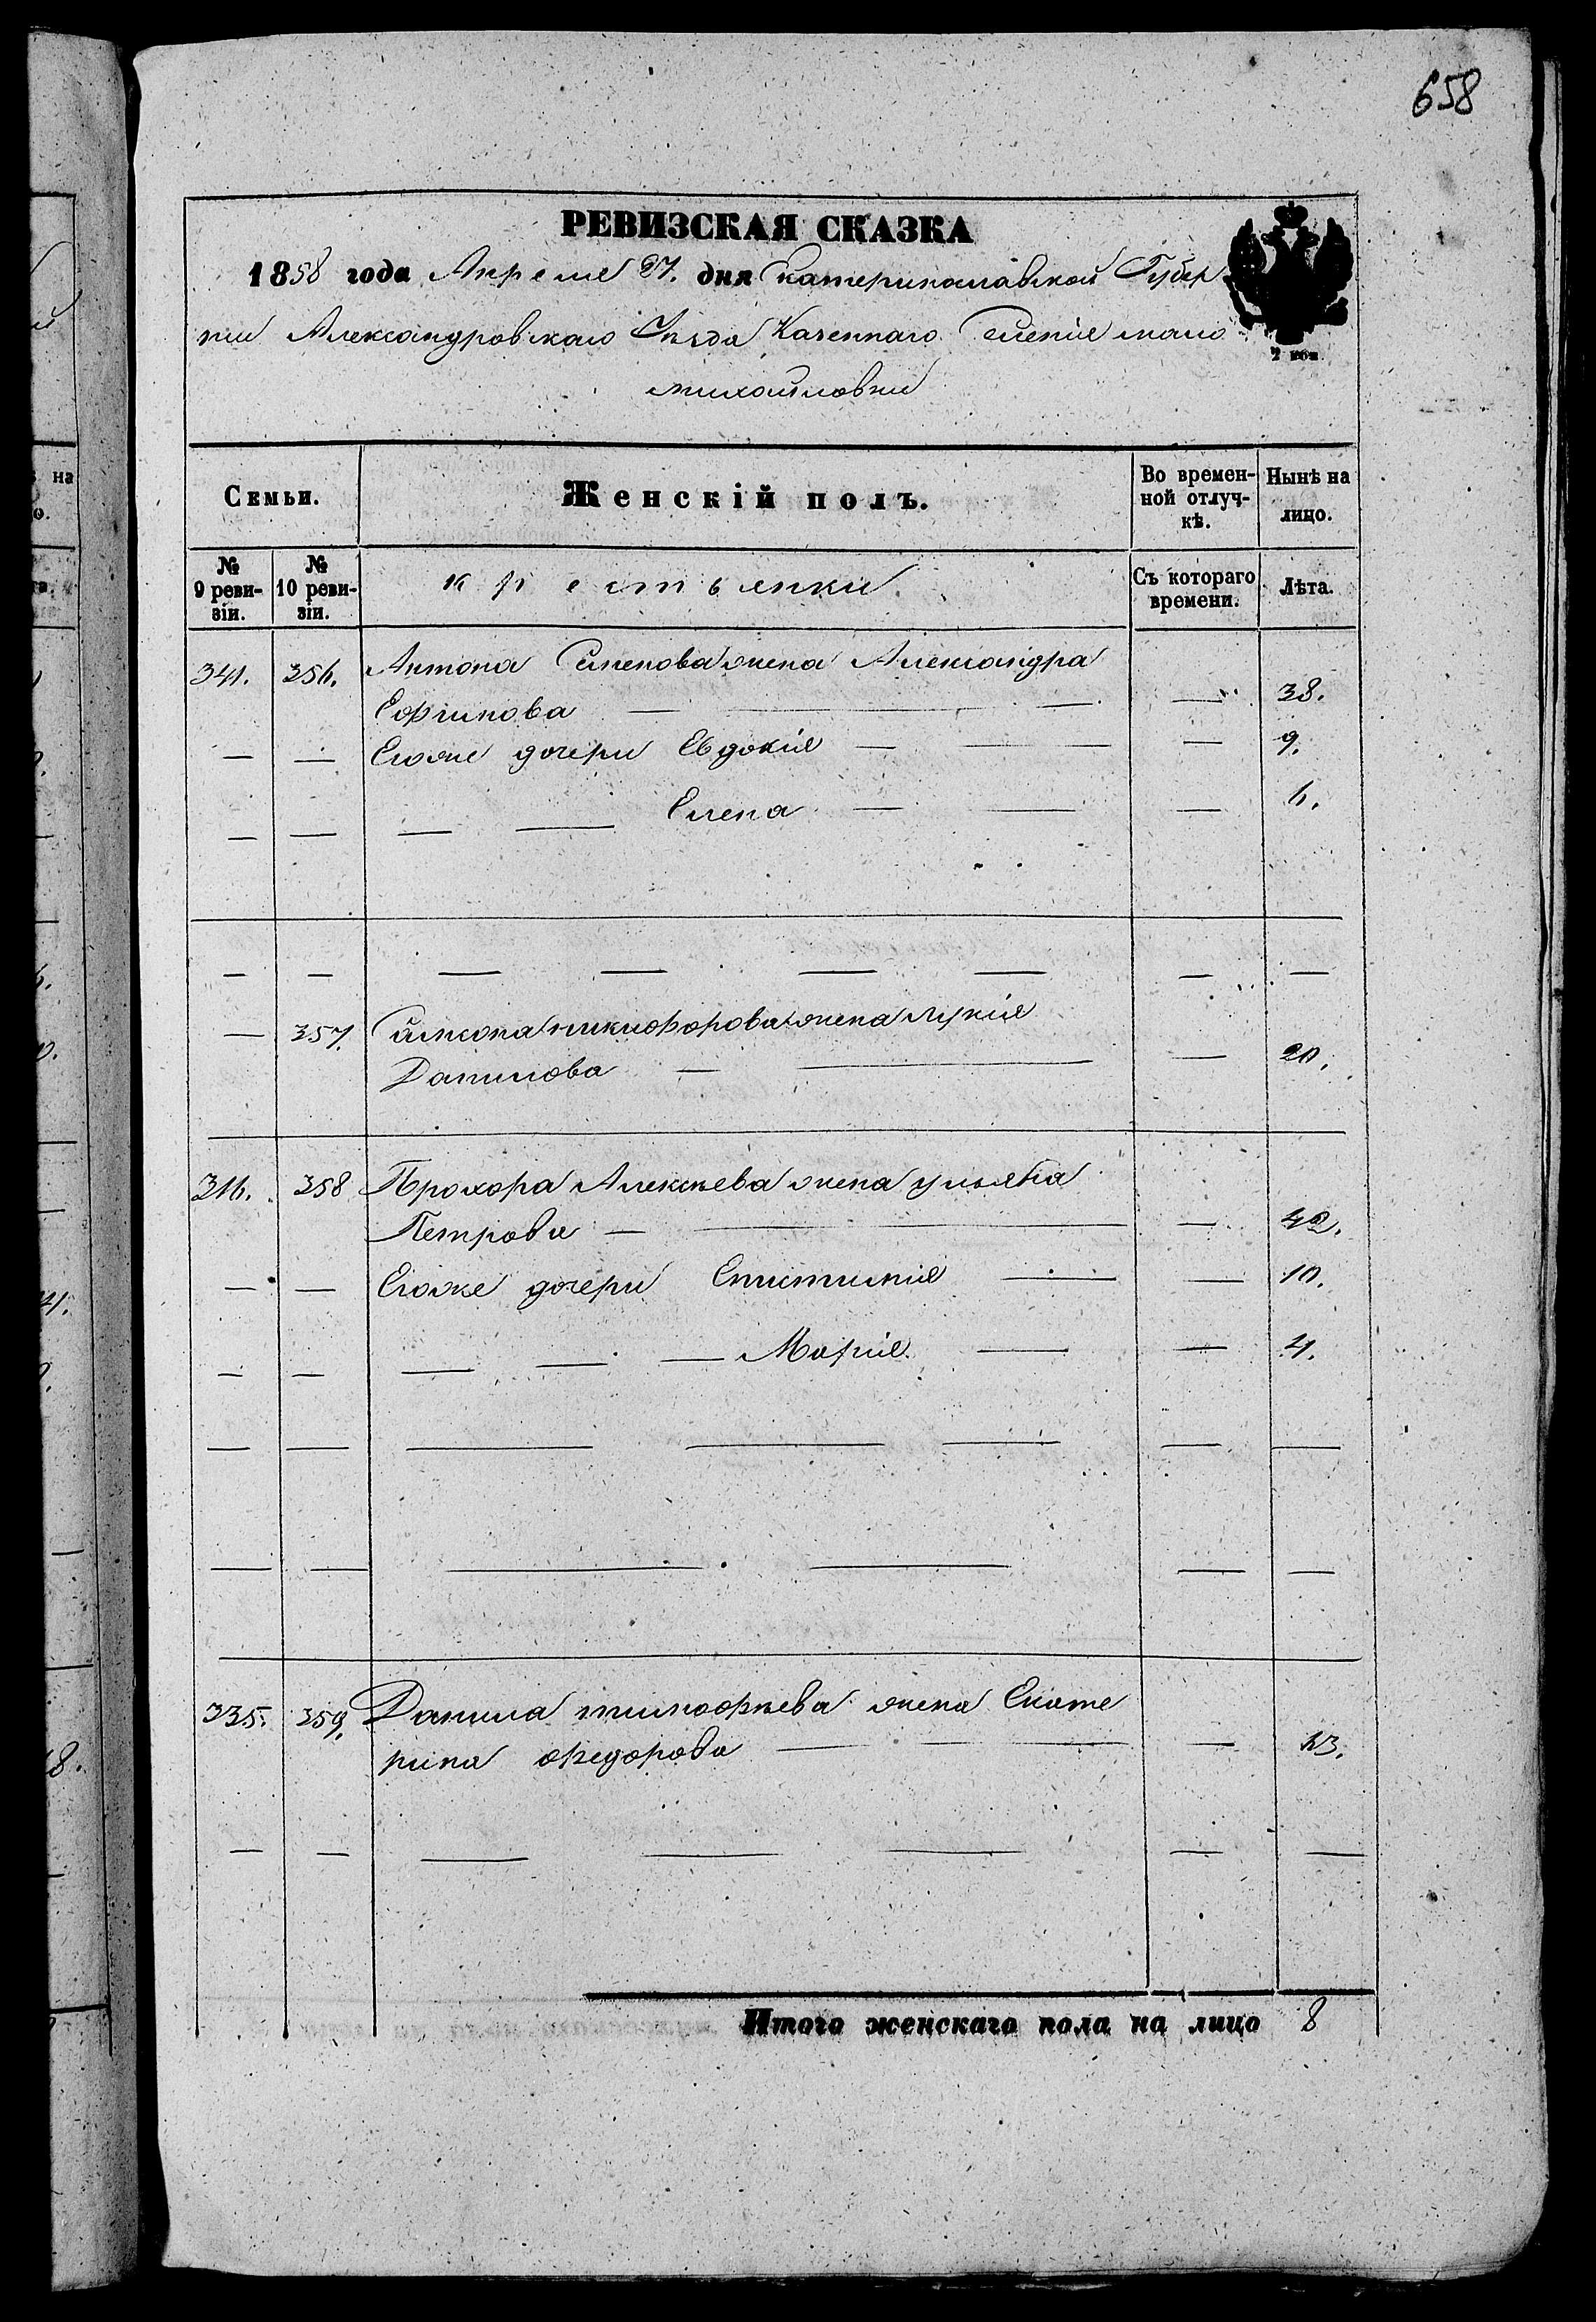 658
РЕВИЗСКАЯ СКАЗКА
1858 года Апреля 27. дня Екатеринославской Губер
нии Александровскаго Уѣзда Казеннаго Селенія мало
михайловки
2 коп.
Семьи.
Женскій полъ.
Во времен-
ной отлуч-
кѣ.
Нынѣ на
лицо.
№
9 реви-
зіи.
№
10 реви-
зіи.
крестьянки
Съ котораго
времени.
Лѣта.
341. 256. Антона Семенова жена Александра
Ефимова — — — 38.
— — Егоже дочери Евдокія — — — 9.
— — — — Елена — — — 6.
— — — — — — — —
— 257. никифорова жена Лукія
Данилова — — — 20.
316. 258 Прохора Алексѣева жена ульяна
Петрова — — — 42.
— — Егоже дочери Епистимія — — 10.
— — — — — Марія — — 4.
— — — — — — —
— — — — — —
335. 259. Данила тимофѣева жена Екате
рина федорова — — — — 53.
— — — — — — —
Итого женскаго пола на лицо 8